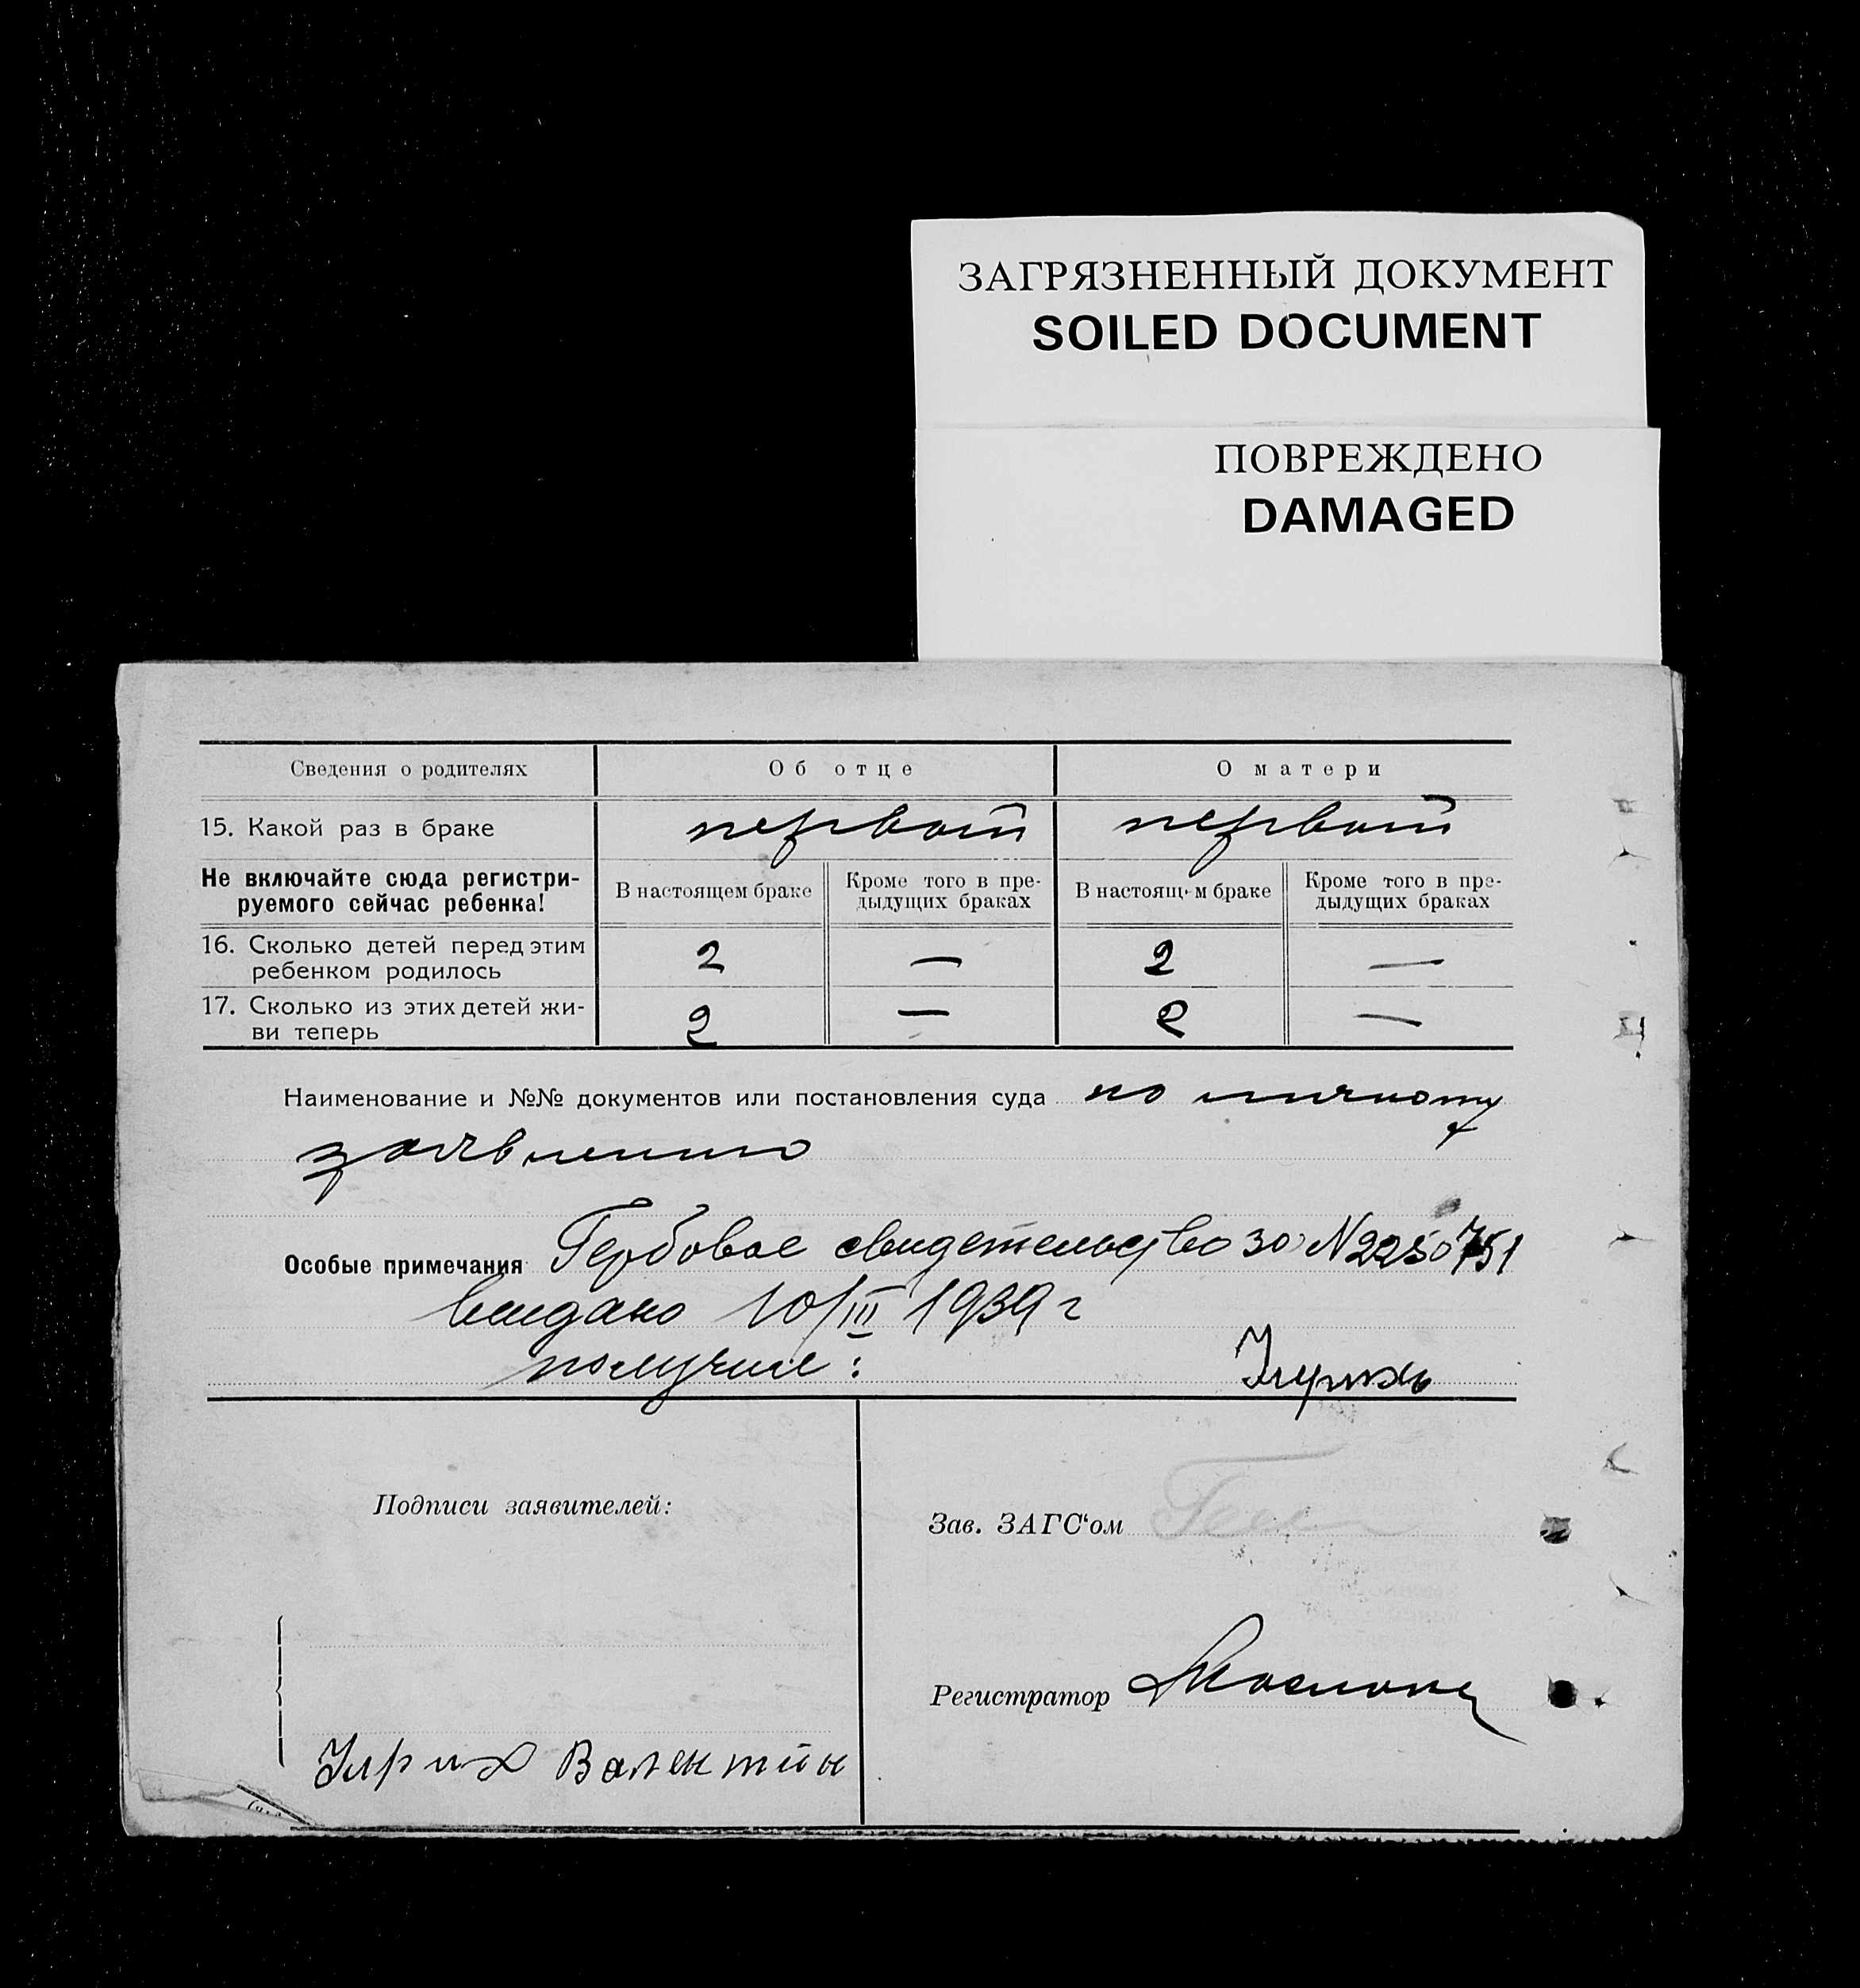 ЗАГРЯЗНЕННЫЙ ДОКУМЕНТ
SOILED DOCUMENT
ПОВРЕЖДЕНО
DAMAGED
Сведения о родителях Об отце О матери
15. Какой раз в браке первый первый
Не включайте сюда регистри-
руемого сейчас ребенка!
В настоящем браке
Кроме того в пре-
дыдущих браках
В настоящем браке
Кроме того в пре-
дыдущих браках
16. Сколько детей перед этим
ребенком родилось 2 — 2 —
17. Сколько из этих детей жи-
ви теперь 2 — 2 —
Наименование и №№ документов или постановления суда по личному
заявлению
Особые примечания Гербовое свидетельство за N2250751
выдано 10/III 1939 г
получил:
Подписи заявителей:
Зав. ЗАГС'ом
Регистратор
Улрих Валентин